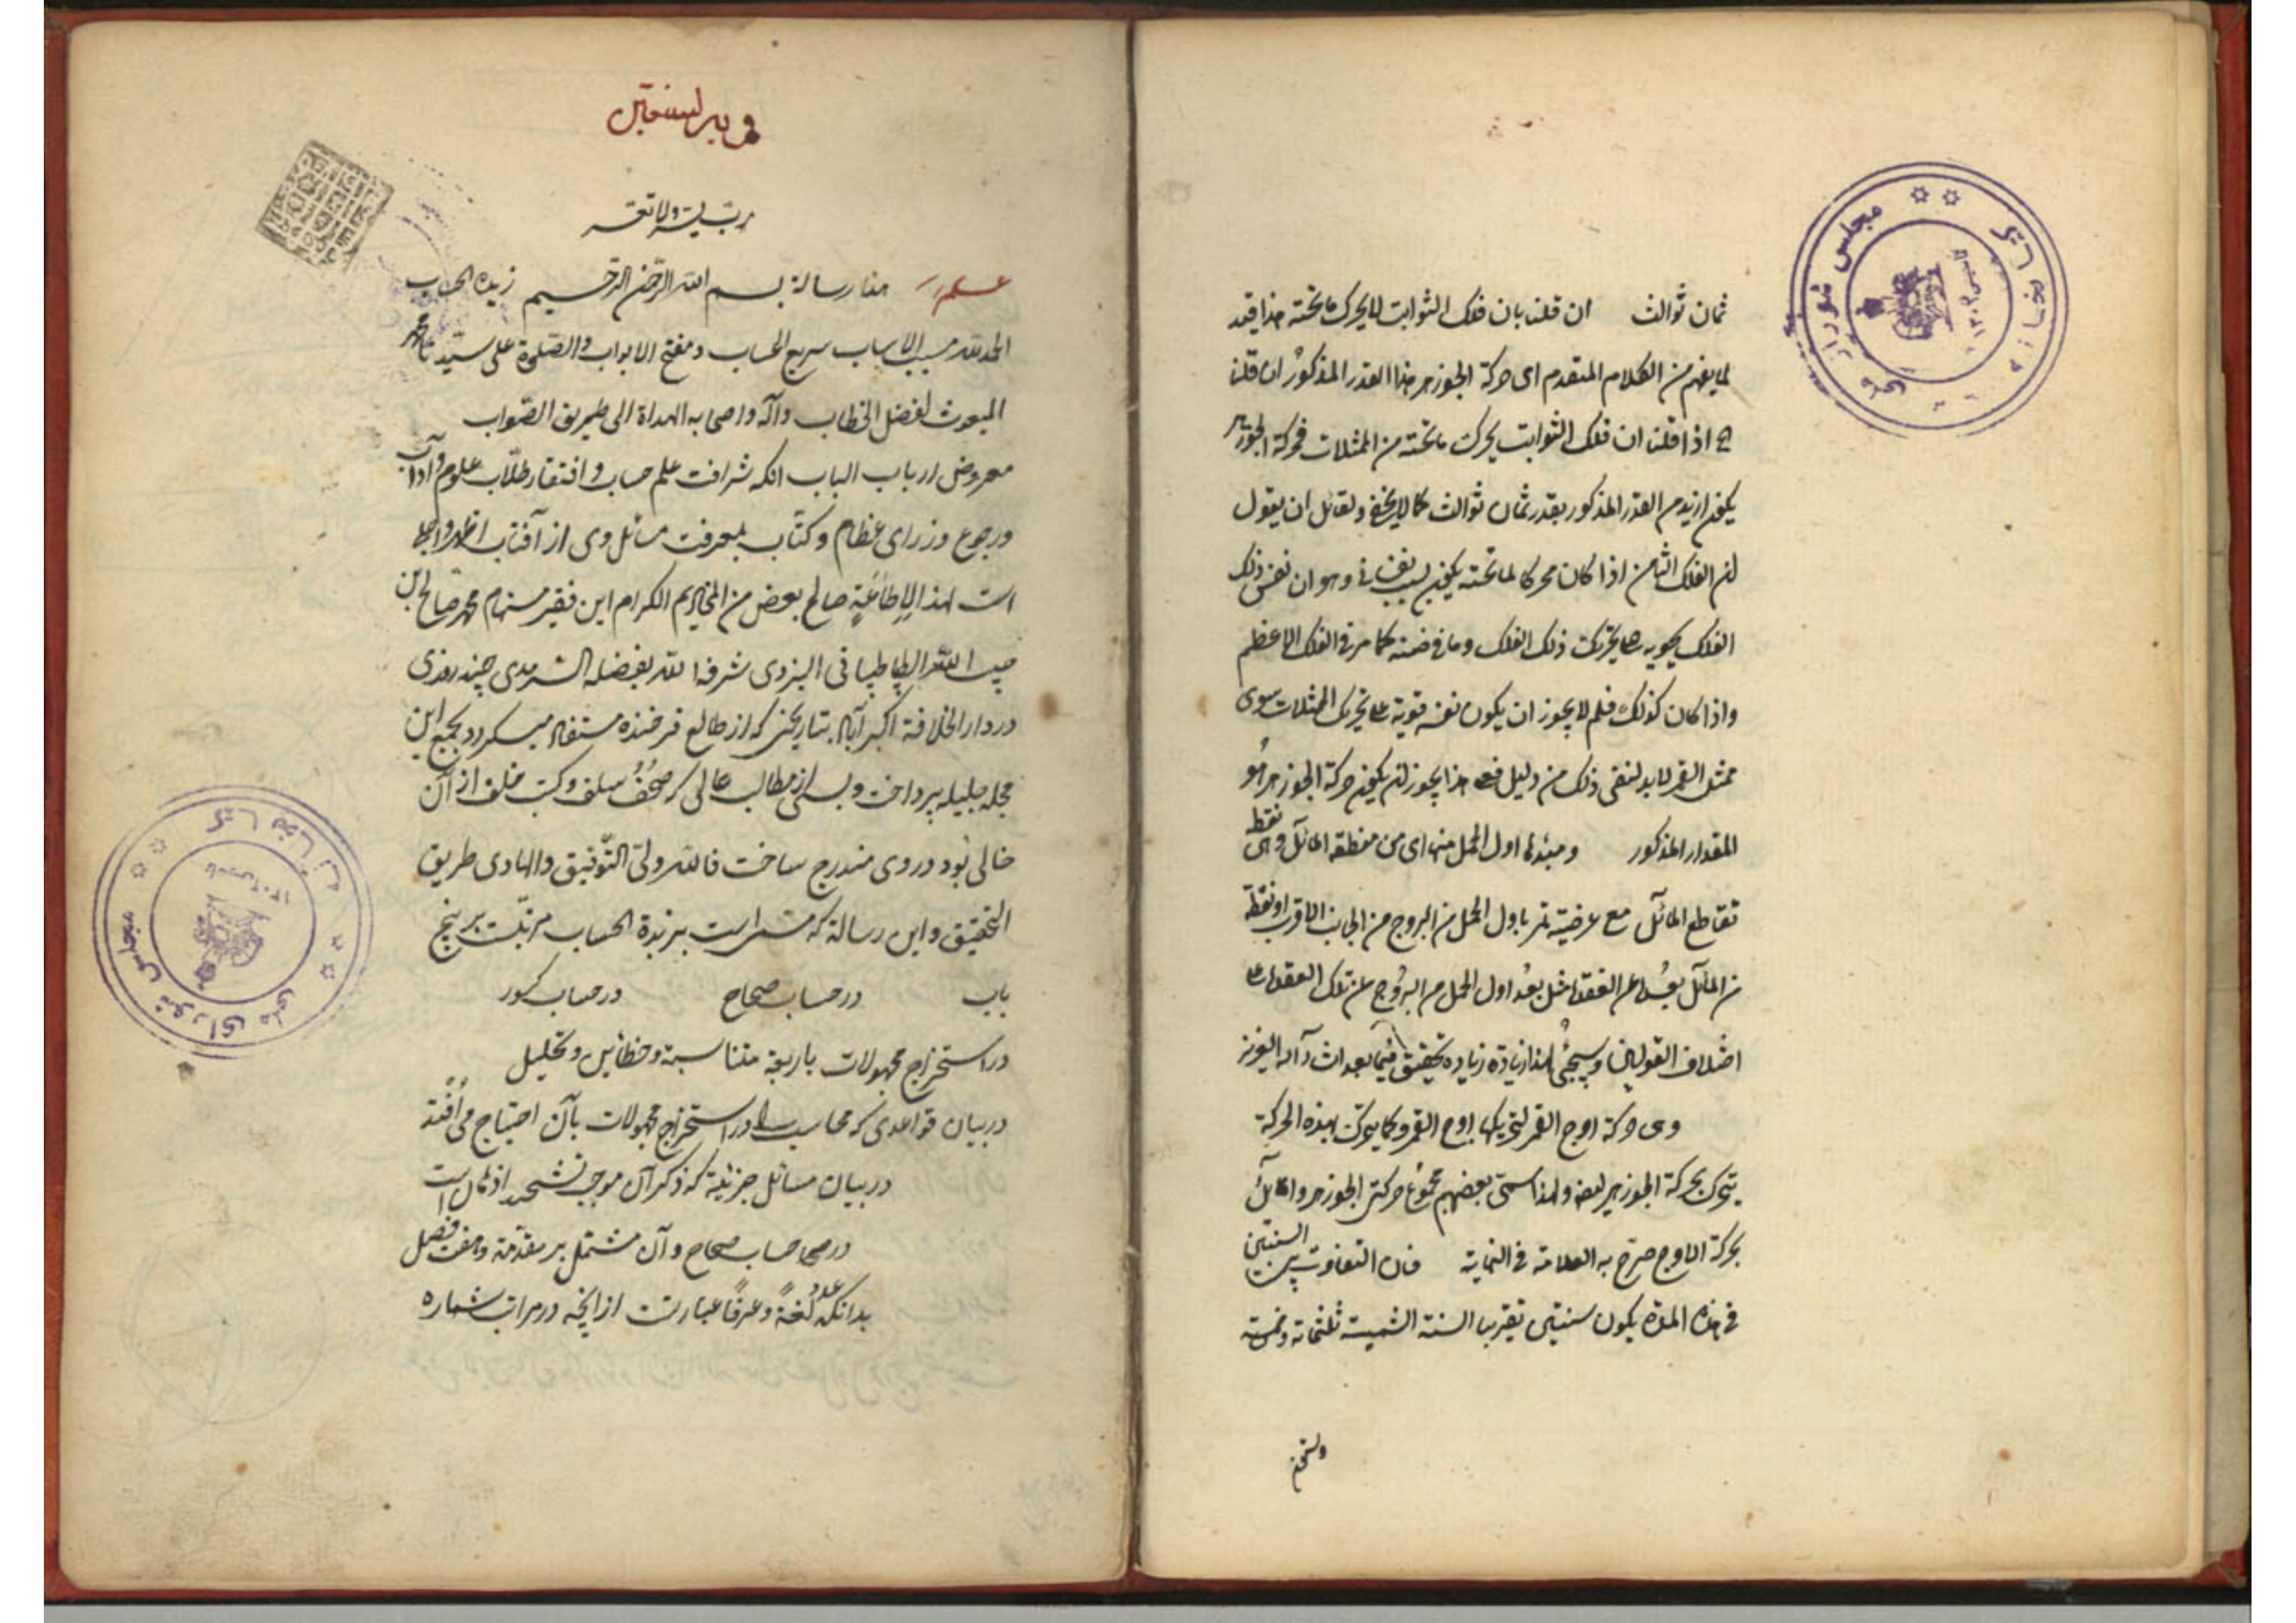 ثمان ثوالث ان قلنا بان فلك الثوابت لا يحرك ما تحته هذا قيد
لما يفهم من الكلام المتقدم اى حركة الجوزهر هذا القدر المذكور ان قلنا
اذا قلنا ان فلك الثوابت يحرك ما تحته من الممثلات فحركة الجوزهر
يكون ازيد من القدر المذكور بقدر ثمان ثوالث كما لا يخفى ولقائل ان يقول
الفلك الثامن اذا كان محركا لما تحته يكون وهو ان نفس ذلك
الفلك تحريك ذلك الفلك وما فى ضمنه كما مر فى الفلك الاعظم
واذا كان كذلك فلم لا يجوز ان يكون نفسه قوية على تحريك الممثلات سوى
ممثل القمر لا بد لنفى ذلك من دليل فعلى هذا يجوز ان يكون حركة الجوزهر هو
المقدار المذكور ومبدئها اول الحمل منها اى من منطقة المائل وهى نقطة
تقاطع المائل مع عرضية تمر باول الحمل من البروج من الجانب الاقرب او نقطة
من المائل بعدها عن العقدة مثل بعد اول الحمل من البروج عن تلك العقدة على
اختلاف القولين وسيجئ لهذا زيادة تحقيق فيما بعد ان شاء الله العزيز
وهى حركة اوج القمر لتحريكها اوج القمر وكما يتحرك بهذه الحركة
يتحرك بحركة الجوزهر ايضا ولهذا سمى بعضهم مجموع حركتى الجوزهر والمائل
بحركة الاوج صرح به العلامة فى النهاية فان التفاوت بين السنتين
فى هذه المدة يكون سنتين تقريبا السنة الشمسية ثلثمائة وخمسة
رب يسر ولا تعسر
هذا رسالة بسم الله الرحمن الرحيم زبدة الحساب
الحمد لله مسبب الاسباب سريع الحساب ومفتح الابواب والصلوة على سيدنا محمد
المبعوث لفصل الخطاب وآله واصحابه الهداة الى طريق الصواب
معروض ارباب الباب انكه شرافت علم حساب و افتقار طلاب علوم و آداب
و رجوع وزراى عظام و كتاب بمعرفت مسائل وى از آفتاب اظهر و اجلى
است لهذا لاطاعة صالح بعض من المخاديم الكرام اين فقير مستهام محمد صالح ابن
حبيب الله الطباطبائى اليزدى شرفه الله بفضله السرمدى چند روزى
در دار الخلافة اكبرآباد بتاريخى كه از طالع فرخنده مستفاد ميگردد بجمع اين
مجله جليله پرداخت و بسى از مطالب عالى كه صحف سلف و كتب خلف از آن
خالى بود در وى مندرج ساخت فالله ولى التوفيق والهادى طريق
التحقيق و اين رساله كه مسماست بزبدة الحساب مرتبست بر پنج
باب در حساب صحاح در حساب كسور
در استخراج مجهولات باربعة متناسبة و خطأين و تحليل
در بيان قواعدى كه محاسب را در استخراج مجهولات بآن احتياج مى افتد
در بيان مسائل جزئية كه ذكر آن موجب تشحيذ اذهان است
در حساب صحاح و آن مشتمل بر مقدمه و هفت فصل
بدانكه عدد لغة و عرفا عبارتست از آنچه در مراتب شماره
مجلس شوراى ملى
كتابخانه
مجلس شوراى ملى
كتابخانه